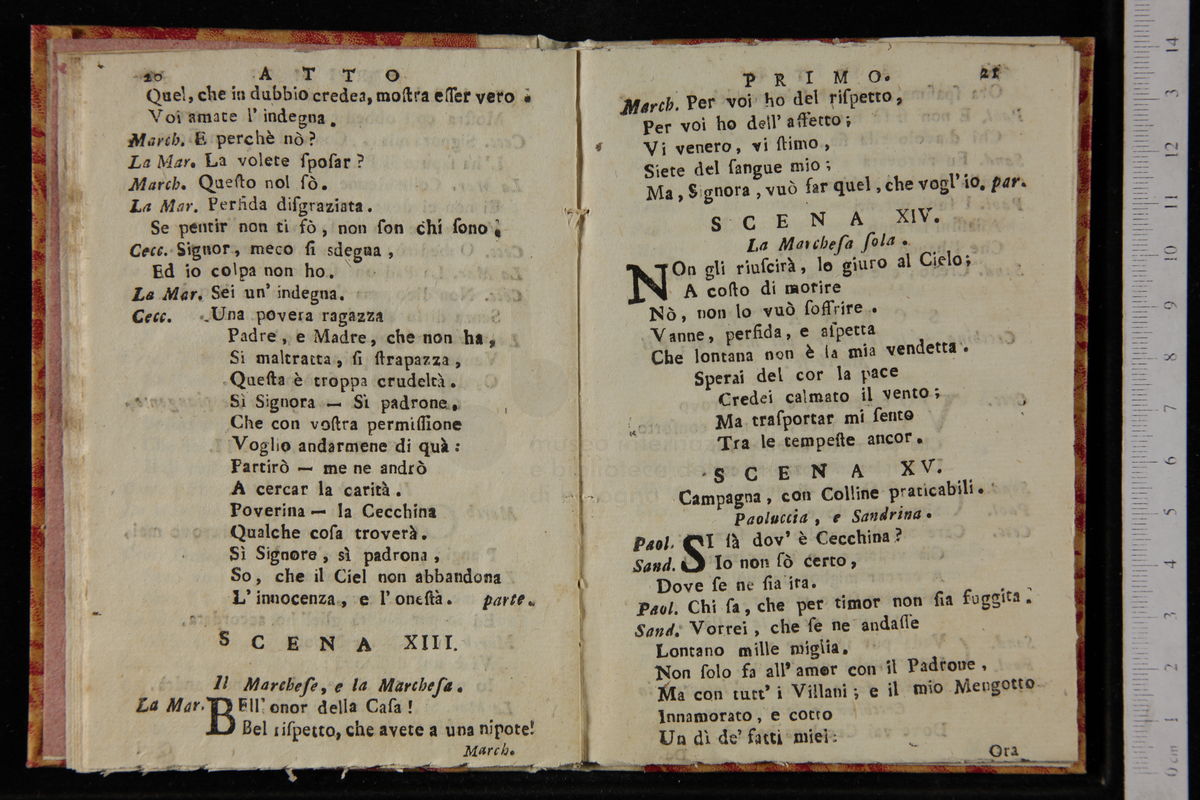 20 ATTO
Quel, che in dubbio credea, moſtra eſſer vero.
Voi amate l'indegna.
March. E perchè nò?
La Mar. La volete ſpoſar?
March. Queſto nol ſò.
La Mar. Perfida diſgraziata.
Se pentir non ti fò, non ſon chi ſono.
Cecc. Signor, meco ſi sdegna,
Ed io colpa non ho.
La Mar. Sei un' indegna.
Cecc. Una povera ragazza
Padre, e Madre, che non ha,
Si maltratta, ſi ſtrapazza,
Queſta è troppa crudeltà.
Sì Signora — Sì padrone,
Che con voſtra permiſſione
Voglio andarmene di quà:
Partirò — me ne andrò
A cercar la carità.
Poverina — la Cecchina
Qualche coſa troverà.
Sì Signore, sì padrona,
So, che il Ciel non abbandona
L'innocenza, e l'oneſtà. parte.
SCENA XIII.
Il Marcheſe, e la Marcheſa.
La Mar. BEll' onor della Caſa!
Bel riſpetto, che avete a una nipote!
March.
PRIMO. 21
March. Per voi ho del riſpetto,
Per voi ho dell' affetto;
Vi venero, vi ſtimo,
Siete del ſangue mio;
Ma, Signora, vuò far quel, che vogl'io. par.
SCENA XIV.
La Marcheſa ſola.
NOn gli riuſcirà, lo giuro al Cielo;
A coſto di morire
Nò, non lo vuò ſoffrire.
Vanne, perfida, e aſpetta
Che lontana non è la mia vendetta.
Sperai del cor la pace
Credei calmato il vento;
Ma traſportar mi ſento
Tra le tempeſte ancor.
SCENA XV.
Campagna, con Colline praticabili.
Paoluccia, e Sandrina.
Paol. SI ſà dov' è Cecchina?
Sand. Io non ſò certo,
Dove ſe ne ſia ita.
Paol. Chi ſa, che per timor non ſia fuggita.
Sand. Vorrei, che ſe ne andaſſe
Lontano mille miglia.
Non ſolo fa all' amor con il Padrone,
Ma con tutt' i Villani; e il mio Mengotto
Innamorato, e cotto
Un dì de' fatti miei:
Ora